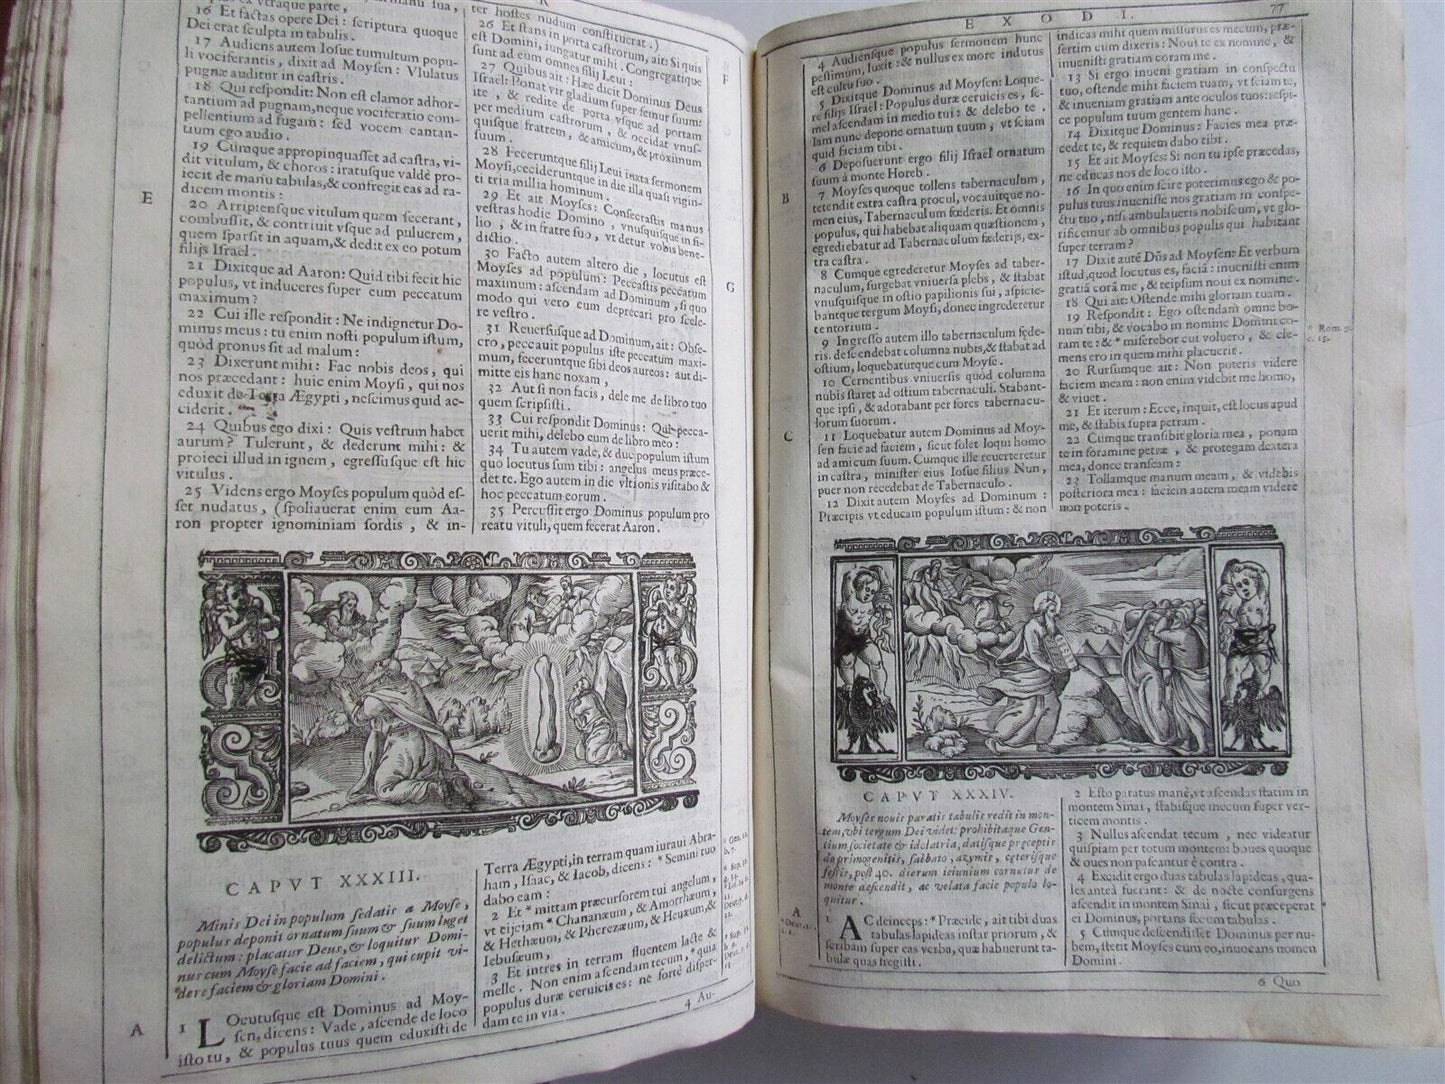 16 Et factas opere Dei : scriptura quoque
Dei erat sculpta in tabulis.
17 Audiens autem Iosue tumultum popu-
li vociferantis, dixit ad Moysen: Vlulatus
pugnæ auditur in castris.
18 Qui respondit: Non est clamor adhor-
tantium ad pugnam, neque vociferatio com-
pellentium ad fugam: sed vocem cantan-
tium ego audio.
19 Cumque appropinquasset ad castra, vi-
dit vitulum, & choros: iratusque valdè pro-
iecit de manu tabulas, & confregit eas ad ra-
dicem montis:
E
20 Arripiensque vitulum quem fecerant,
combussit, & contriuit vsque ad puluerem,
quem sparsit in aquam, & dedit ex eo potum
filijs Israel.
21 Dixitque ad Aaron: Quid tibi fecit hic
populus, vt induceres super eum peccatum
maximum?
22 Cui ille respondit: Ne indignetur Do-
minus meus: tu enim nosti populum istum,
quòd pronus sit ad malum:
23 Dixerunt mihi: Fac nobis deos, qui
nos præcedant: huic enim Moysi, qui nos
eduxit de Terra Ægypti, nescimus quid ac-
ciderit.
24 Quibus ego dixi: Quis vestrum habet
aurum? Tulerunt, & dederunt mihi: &
proieci illud in ignem, egressusque est hic
vitulus.
25 Videns ergo Moyses populum quòd es-
set nudatus, (spoliauerat enim eum Aa-
ron propter ignominiam sordis, & in-
ter hostes nudum constituerat.)
26 Et stans in porta castrorum, ait: Si quis
est Domini, iungatur mihi. Congregatique
sunt ad eum omnes filij Leui:
F
27 Quibus ait: Hæc dicit Dominus Deus
Israel: Ponat vir gladium super femur suum:
ite, & redite de porta vsque ad portam
per medium castrorum, & occidat vnus-
quisque fratrem, & amicum, & proximum
suum.
28 Feceruntque filij Leui iuxta sermonem
Moysi, cecideruntque in die illa quasi vigin-
ti tria millia hominum.
29 Et ait Moyses: Consecrastis manus
vestras hodie Domino, vnusquisque in fi-
lio, & in fratre suo, vt detur vobis bene-
dictio.
30 Facto autem altero die, locutus est
G
Moyses ad populum: Peccastis peccatum
maximum: ascendam ad Dominum, si quo
modo qui vero eum deprecari pro scele-
re vestro.
31 Reuersusque ad Dominum, ait: Obse-
cro, peccauit populus iste peccatum maxi-
mum, feceruntque sibi deos aureos: aut di-
mitte eis hanc noxam,
32 Aut si non facis, dele me de libro tuo
quem scripsisti.
33 Cui respondit Dominus: Qui pecca-
uerit mihi, delebo eum de libro meo:
34 Tu autem vade, & duc populum istum
quo locutus sum tibi: angelus meus præce-
det te. Ego autem in die vltionis visitabo &
hoc peccatum eorum.
35 Percussit ergo Dominus populum pro
reatu vituli, quem fecerat Aaron.
CAPVT XXXIII.
Minis Dei in populum sedatis a Moyse,
populus deponit ornatum suum & suum luget
delictum: placatur Deus, & loquitur Domi-
nus cum Moyse facie ad faciem, qui cupit vi-
dere faciem & gloriam Domini.
A
1 LOcutusque est Dominus ad Moy-
sen, dicens: Vade, ascende de loco
isto tu, & populus tuus quem eduxisti de
Terra Ægypti, in terram quam iuraui Abra-
ham, Isaac, & Iacob, dicens: * Semini tuo
dabo eam:
2 Et * mittam præcursorem tui angelum,
vt eijciam * Chananæum, & Amorrhæum,
& Hethæum, & Pherezæum, & Heuæum, &
Iebusæum,
3 Et intres in terram fluentem lacte &
melle. Non enim ascendam tecum, * quia
populus duræ ceruicis es: ne fortè disper-
dam te in via.
4 Au-
EXODI.
77
4 Audiensque populus sermonem hunc
pessimum, luxit: & nullus ex more indutus
est cultu suo.
5 Dixitque Dominus ad Moysen: Loque-
re filijs Israel: Populus duræ ceruicis es, se-
mel ascendam in medio tui: & delebo te.
Iam nunc depone ornatum tuum, vt sciam
quid faciam tibi.
6 Deposuerunt ergo filij Israel ornatum
suum à monte Horeb.
B
7 Moyses quoque tollens tabernaculum,
tetendit extra castra procul, vocauitque no-
men eius, Tabernaculum fœderis. Et omnis
populus, qui habebat aliquam quæstionem,
egrediebatur ad Tabernaculum fœderis, ex-
tra castra.
8 Cumque egrederetur Moyses ad taber-
naculum, surgebat vniuersa plebs, & stabat
vnusquisque in ostio papilionis sui, aspicie-
bantque tergum Moysi, donec ingrederetur
tentorium.
9 Ingresso autem illo tabernaculum fœde-
ris, descendebat columna nubis, & stabat ad
ostium, loquebaturque cum Moyse.
10 Cernentibus vniuersis quòd columna
nubis staret ad ostium tabernaculi. Stabant-
que ipsi, & adorabant per fores tabernacu-
lorum suorum.
C
11 Loquebatur autem Dominus ad Moy-
sen facie ad faciem, sicut solet loqui homo
ad amicum suum. Cumque ille reuerteretur
in castra, minister eius Iosue filius Nun,
puer non recedebat de Tabernaculo.
12 Dixit autem Moyses ad Dominum:
Præcipis vt educam populum istum: & non
indicas mihi quem missurus es mecum, præ-
sertim cum dixeris: Noui te ex nomine, &
inuenisti gratiam coram me.
13 Si ergo inueni gratiam in conspectu
tuo, ostende mihi faciem tuam, vt sciam te,
& inueniam gratiam ante oculos tuos: respi-
ce populum tuum gentem hanc.
14 Dixitque Dominus: Facies mea præ-
cedet te, & requiem dabo tibi.
15 Et ait Moyses: Si non tu ipse præcedas,
ne educas nos de loco isto.
16 In quo enim scire poterimus ego & po-
pulus tuus inuenisse nos gratiam in conspe-
ctu tuo, nisi ambulaueris nobiscum, vt glo-
rificemur ab omnibus populis qui habitant
super terram?
17 Dixit autē Dñs ad Moysen: Et verbum
istud, quod locutus es, faciã: inuenisti enim
gratiã corã me, & teipsum noui ex nomine.
18 Qui ait: Ostende mihi gloriam tuam.
19 Respondit: Ego ostendam omne bo-
num tibi, & vocabo in nomine Domini co-
ram te: & * miserebor cui voluero, & cle-
mens ero in quem mihi placuerit.
* Rom. 9.
c. 15.
20 Rursumque ait: Non poteris videre
faciem meam: non enim videbit me homo,
& viuet.
21 Et iterum: Ecce, inquit, est locus apud
me, & stabis supra petram.
22 Cumque transibit gloria mea, ponam
te in foramine petræ, & protegam dextera
mea, donec transeam:
23 Tollamque manum meam, & videbis
posteriora mea: faciem autem meam videre
non poteris.
CAPVT XXXIV.
Moyses nouis paratis tabulis redit in mon-
tem, vbi tergum Dei videt: prohibitaque Gen-
tium societate & idolatria, datisque præceptis
de primogenitis, sabbato, azymis, ceterisque
festis, post 40. dierum ieiunium cornutus de
monte descendit, ac velata facie populo lo-
quitur.
A
1 AC deinceps: * Præcide, ait tibi duas
tabulas lapideas instar priorum, &
scribam super eas verba, quæ habuerunt ta-
bulæ quas fregisti.
2 Esto paratus manè, vt ascendas statim in
montem Sinai, stabisque mecum super ver-
ticem montis.
3 Nullus ascendat tecum, nec videatur
quispiam per totum montem: boues quoque
& oues non pascantur è contra.
4 Excidit ergo duas tabulas lapideas, qua-
les anteà fuerant: & de nocte consurgens
ascendit in montem Sinai, sicut præceperat
ei Dominus, portans secum tabulas.
5 Cumque descendisset Dominus per nu-
bem, stetit Moyses cum eo, inuocans nomen
Domini.
6 Quo